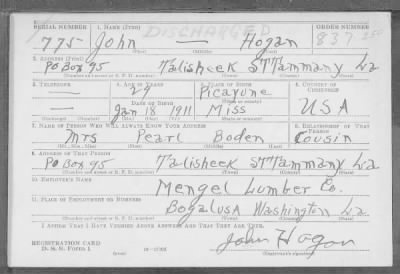 SERIAL NUMBER 1. NAME (Print) ORDER NUMBER
DISCHARGED
775 John — Hogan 837
(First) (Middle) (Last)
2. ADDRESS (Print)
PO Box 95 Talisheek St Tammany La
(Number and street or R. F. D. number) (Town) (County) (State)
3. TELEPHONE 4. AGE IN YEARS 5. PLACE OF BIRTH 6. COUNTRY OF CITIZENSHIP
— 29 Picayune
DATE OF BIRTH
— Jan 18 1911 Miss USA
(Exchange) (No.) (Mo.) (Day) (Yr.) (State or country)
7. NAME OF PERSON WHO WILL ALWAYS KNOW YOUR ADDRESS 8. RELATIONSHIP OF THAT PERSON
Mrs Pearl Boden Cousin
(Mr., Mrs., Miss) (First) (Middle) (Last)
9. ADDRESS OF THAT PERSON
PO Box 95 Talisheek St Tammany La
(Number and street or R. F. D. number) (Town) (County) (State)
10. EMPLOYER'S NAME
Mengel Lumber Co.
11. PLACE OF EMPLOYMENT OR BUSINESS
Bogalusa Washington La
(Number and street or R. F. D. number) (Town) (County) (State)
I AFFIRM THAT I HAVE VERIFIED ABOVE ANSWERS AND THAT THEY ARE TRUE.
REGISTRATION CARD
D. S. S. Form 1 (over) 16—17105 John Hogan
(Registrant's signature)